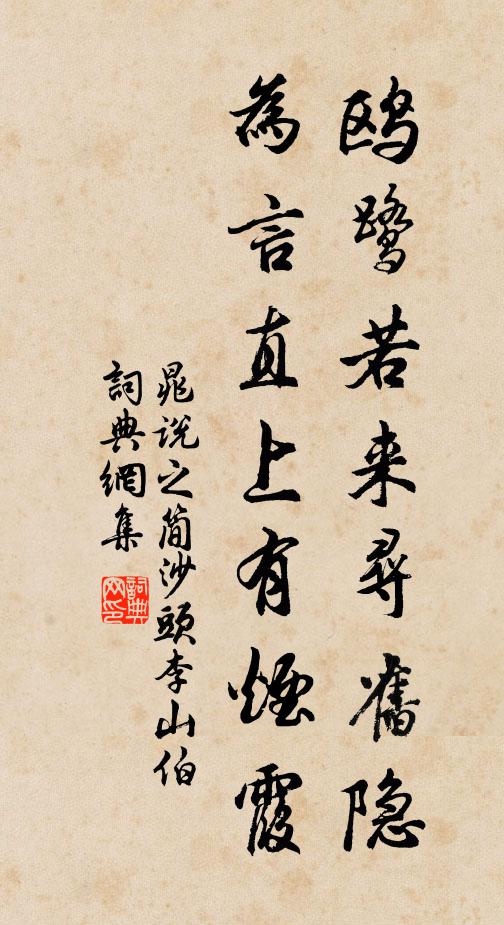 鸥鹭若来寻旧隐
為言直上有煙霞
晁说之简沙頭李山伯
詞典網集
詞典網印